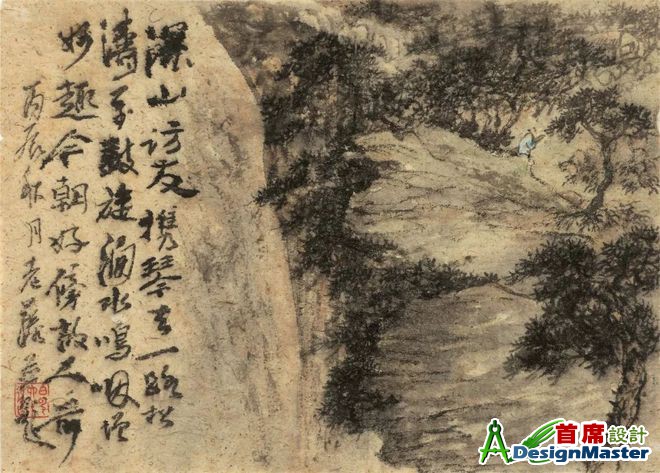 深山访友携琴去一路松
涛万鼓旋涧水鸣咽增
妙趣今朝好傍故人前
丙辰秋月老
首席設計
DesignMaster